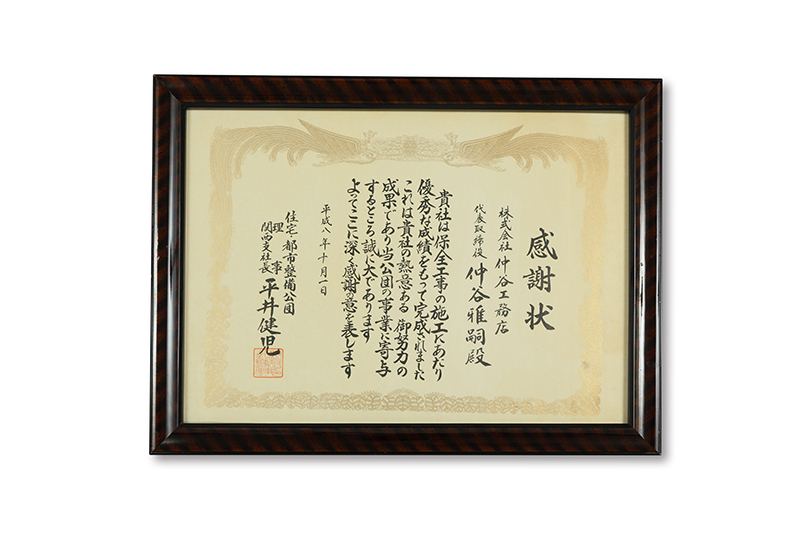 感謝状
株式会社 仲谷工務店
代表取締役 仲谷雅嗣殿
貴社は保全工事の施工にあたり
優秀な成績をもって完成されました
これは貴社の熱意ある御努力の
成果であり当公団の事業に寄与
するところ誠に大であります
よってここに深く感謝の意を表します
平成八年十月一日
住宅・都市整備公団
理事
関西支社長 平井健児